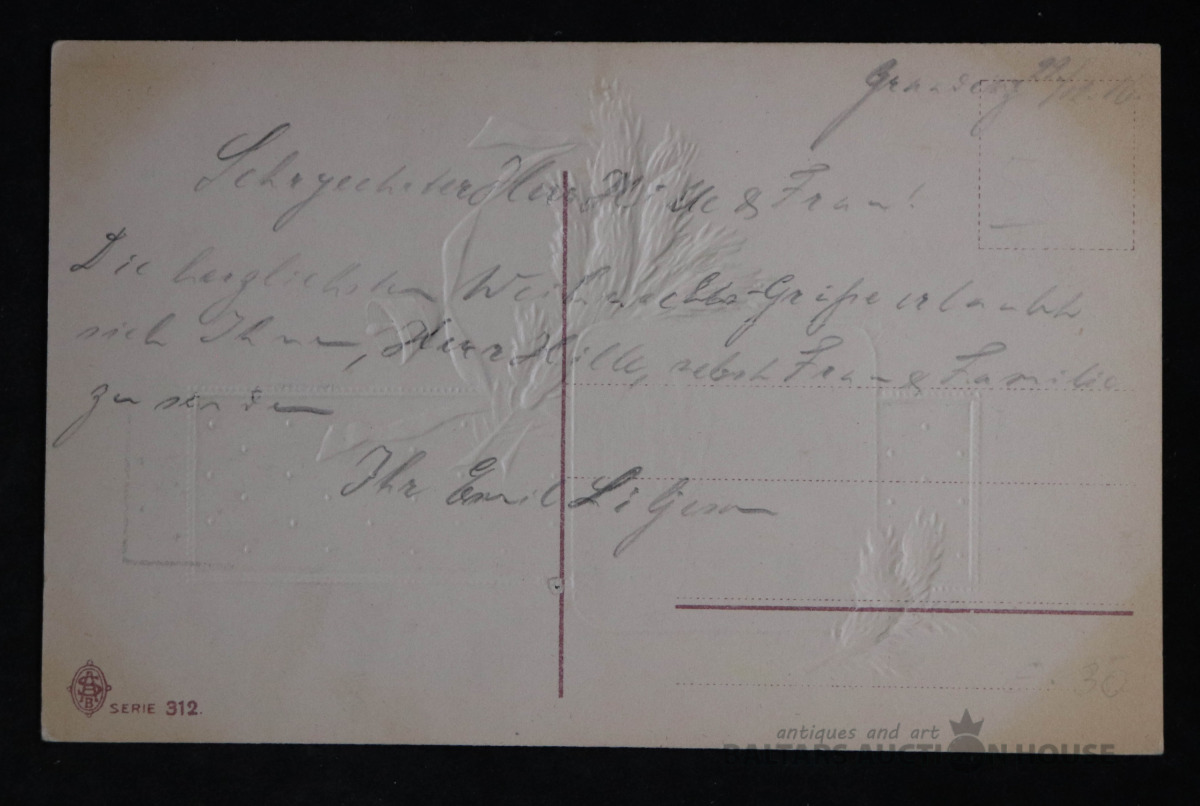 Graudenz
Sehrgeehrter Herr Hille & Frau!
Die herzlichsten Weihnachts-Grüße erlaubt
sich Ihnen, Herr Hille, nebst Frau & Familie
zu senden
Ihr Emil
SERIE 312.
30
antiques and art
BALTARS AUCTION HOUSE